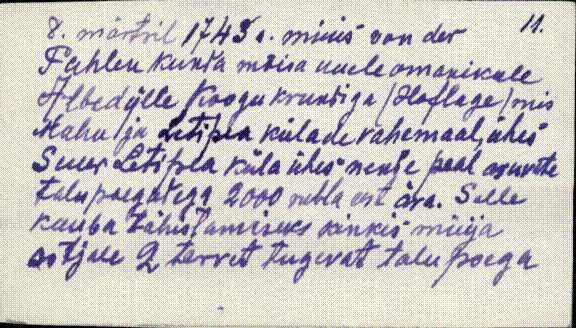 11.
8. märtsil 1743 a. müüs von der
Pahlen Kunda mõisa uuele omanikule
Albedylle Koogu krundiga (Hoflage) mis
Mahu ja Letipea külade vahemaal, ühes
Suur Letipea küla ühes nende peal asuvate
talupoegadega 2000 rubla eest ära. Selle
kauba tähistamiseks kinkis müüja
ostjale 2 tervet tugevat talupoega